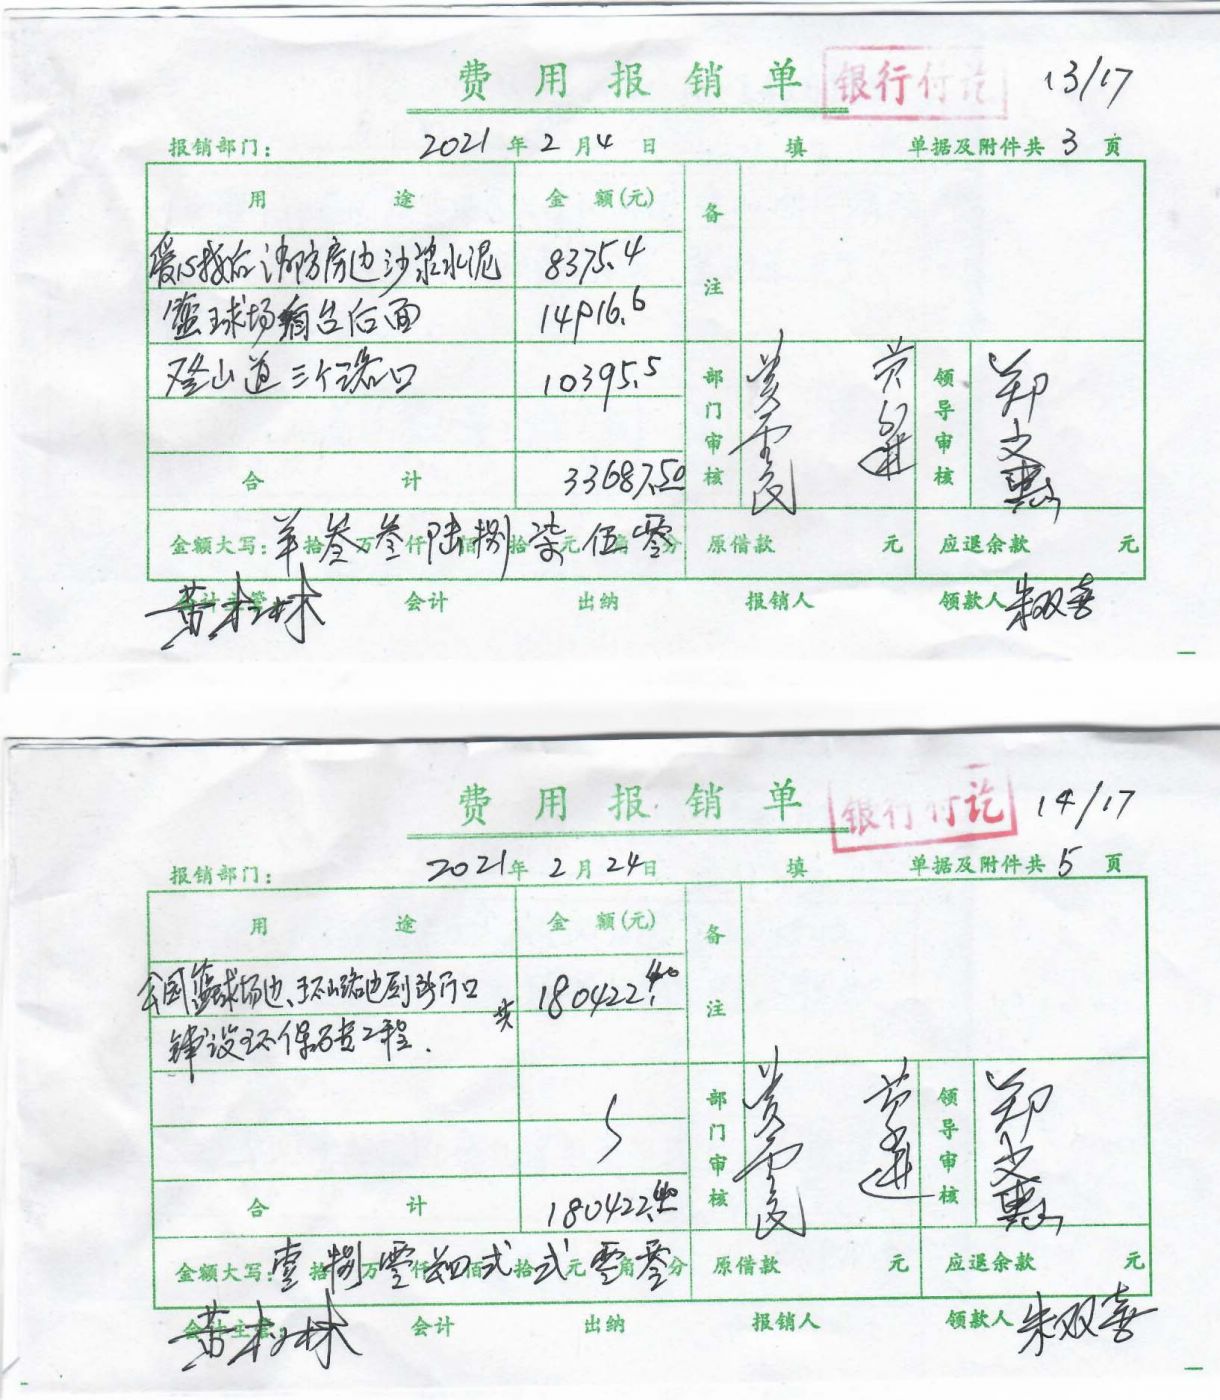 费用报销单 银行付讫 13/17
报销部门： 2021年2月4日 填 单据及附件共3页
用途 金额(元) 备注
爱心接后消防房边沙浆水泥 8375.4
篮球场看台后面 14916.6
登山道三个路口 10395.5
部门审核 领导审核 郑文惠
合计 33687.50
金额大写： 拾叁万叁仟陆佰捌拾柒元伍角零分 原借款 元 应退余款 元
会计主管 会计 出纳 报销人 领款人 朱双喜
费用报销单 银行付讫 14/17
报销部门： 2021年2月24日 填 单据及附件共5页
用途 金额(元) 备注
公园篮球场边、环山路边到 口 180422.40
铺设环保砖工程. 共
部门审核 领导审核 郑文惠
合计 180422.40
金额大写：壹拾捌万零仟肆佰贰拾贰元零角零分 原借款 元 应退余款 元
会计主管： 会计 出纳 报销人 领款人 朱双喜